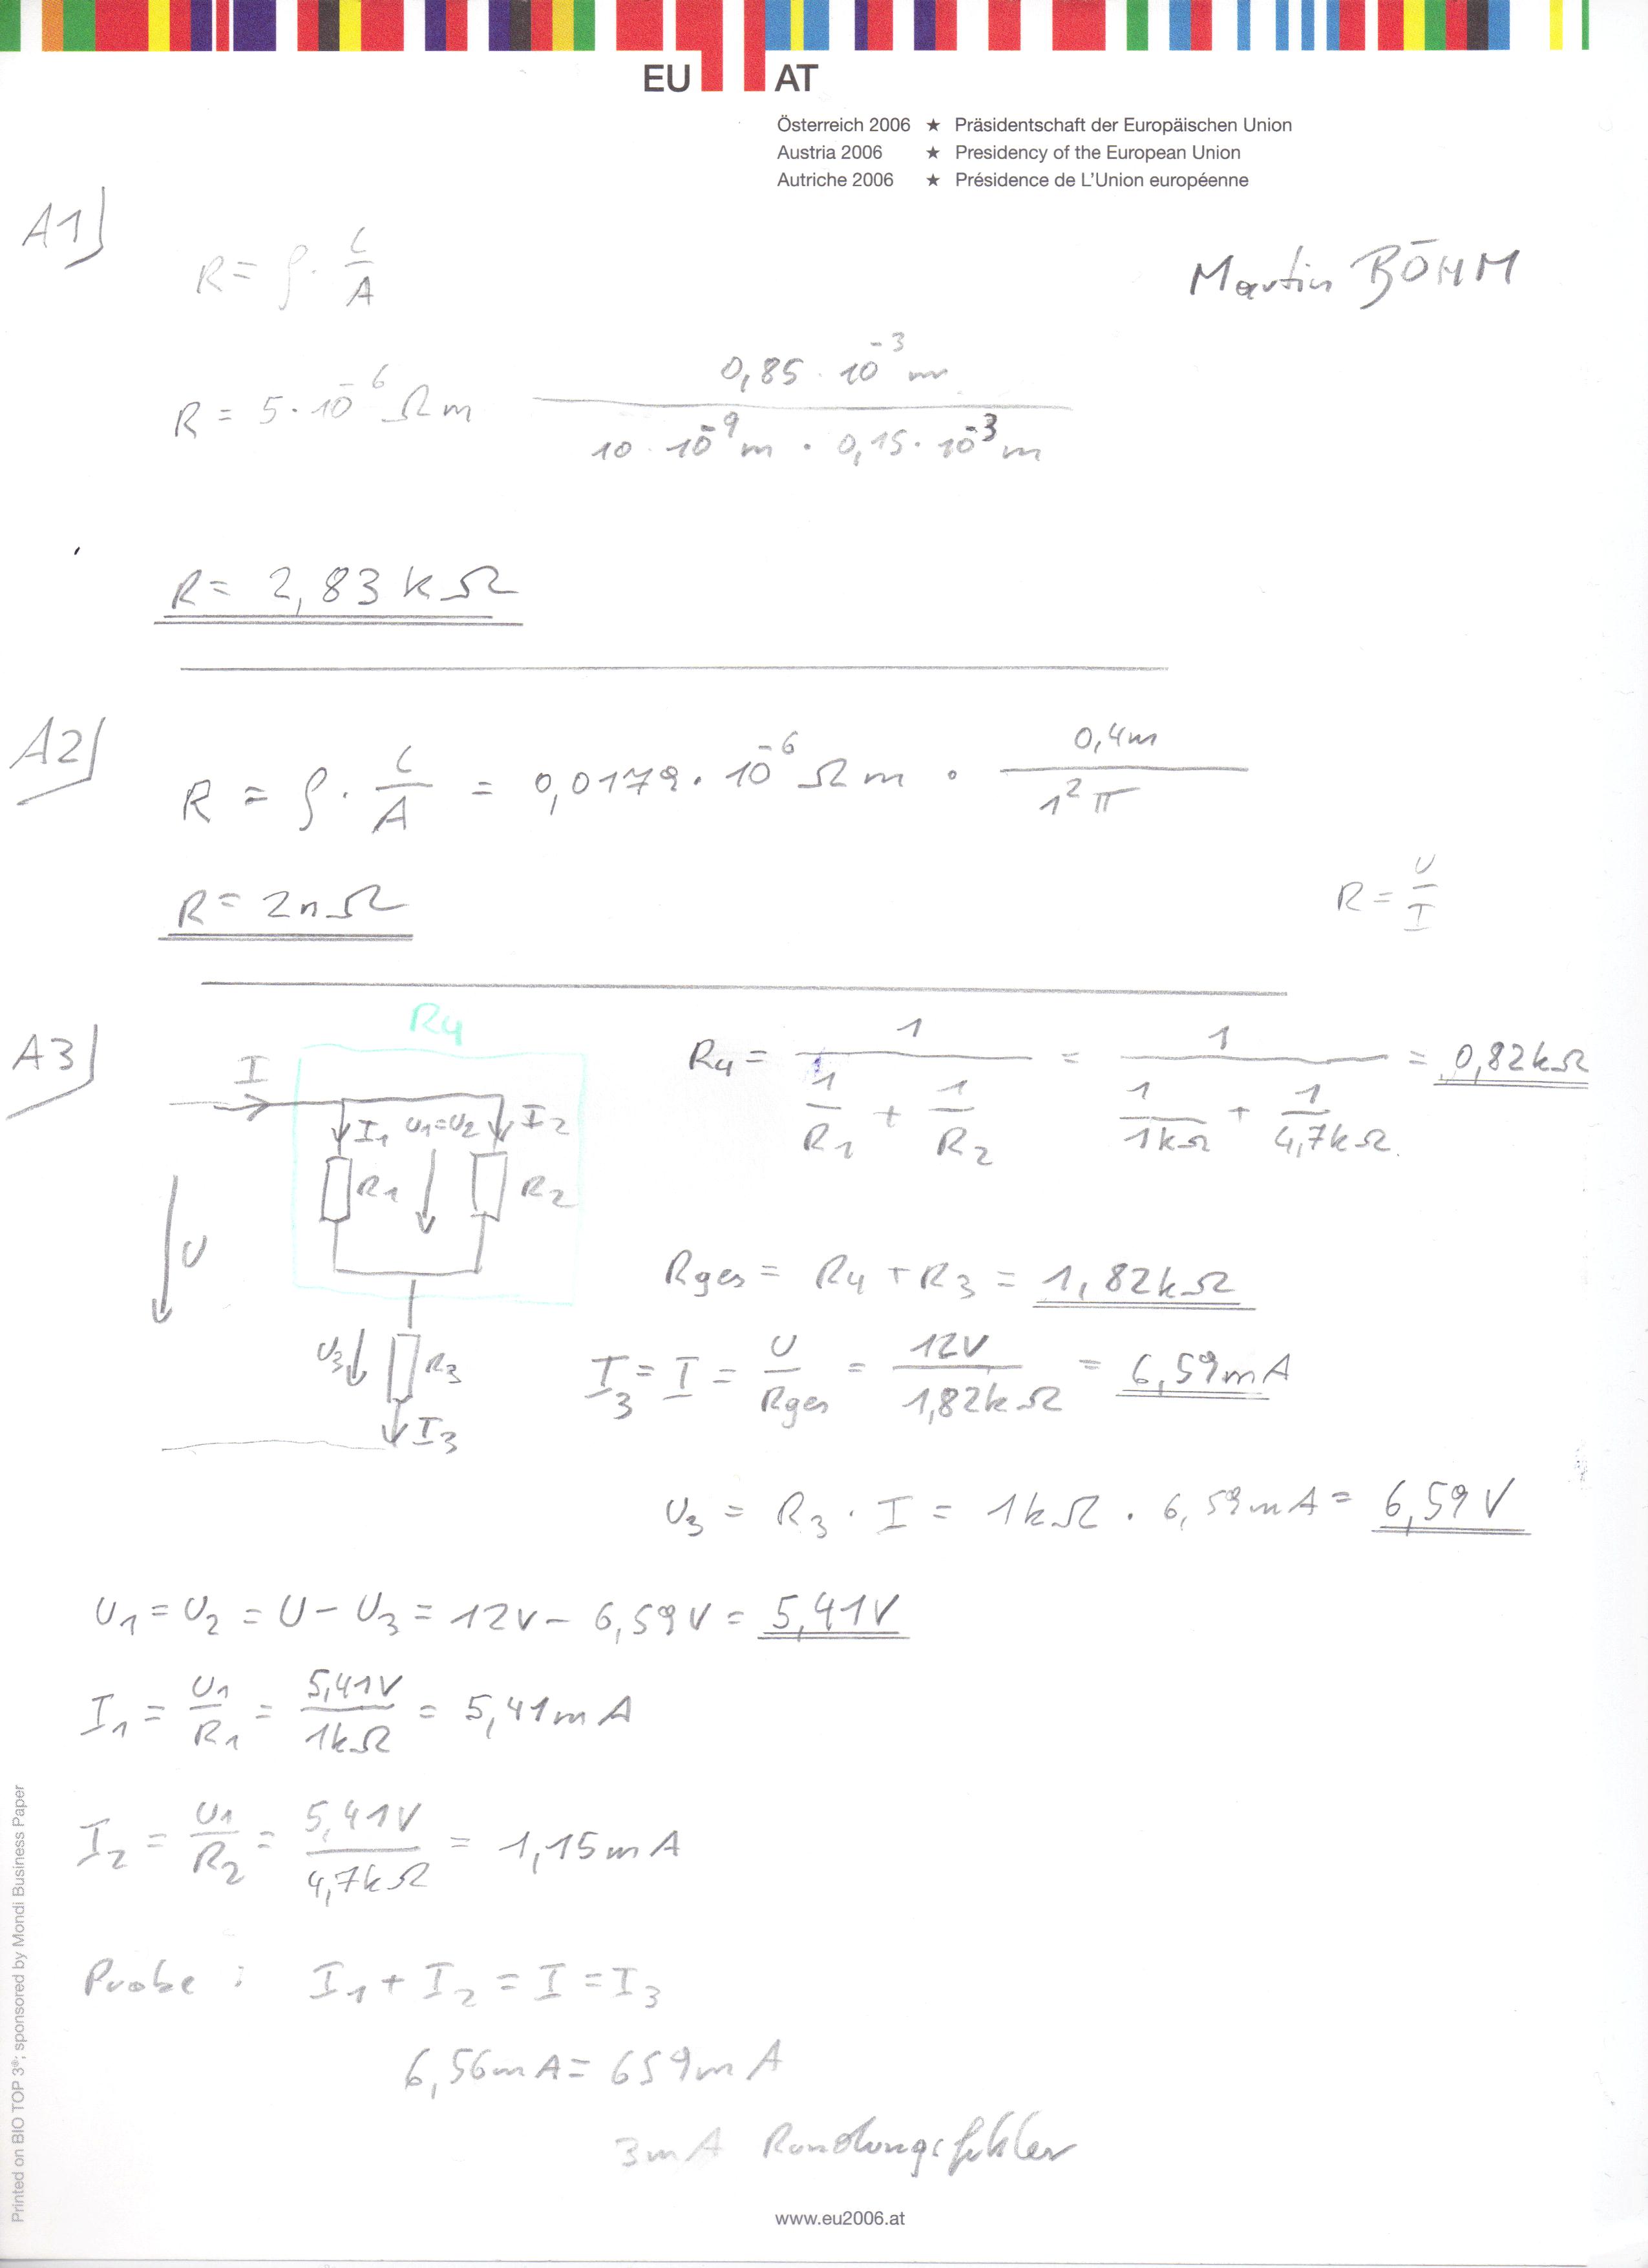 EU AT
Österreich 2006 ★ Präsidentschaft der Europäischen Union
Austria 2006 ★ Presidency of the European Union
Autriche 2006 ★ Présidence de L'Union européenne
A1)
Martin BÖHM
R = ρ · l/A
R = 5 · 10⁻⁶ Ωm (0,85 · 10⁻³ m)/(10 · 10⁻⁹ m · 0,15 · 10⁻³ m)
R = 2,83 kΩ
A2)
R = ρ · l/A = 0,0179 · 10⁻⁶ Ωm · 0,4m/(1²π)
R = 2nΩ
R = U/I
A3)
R4
I
I1 U1=U2 I2
R1 R2
U
U3 R3
I3
R4 = 1/(1/R1 + 1/R2) = 1/(1/1kΩ + 1/4,7kΩ) = 0,82kΩ
Rges = R4 + R3 = 1,82kΩ
I3 = I = U/Rges = 12V/1,82kΩ = 6,59mA
U3 = R3 · I = 1kΩ · 6,59mA = 6,59V
U1 = U2 = U - U3 = 12V - 6,59V = 5,41V
I1 = U1/R1 = 5,41V/1kΩ = 5,41mA
I2 = U1/R2 = 5,41V/4,7kΩ = 1,15mA
Probe : I1 + I2 = I = I3
6,56mA = 659mA
3mA Rundungsfehler
www.eu2006.at
Printed on BIO TOP 3®; sponsored by Mondi Business Paper